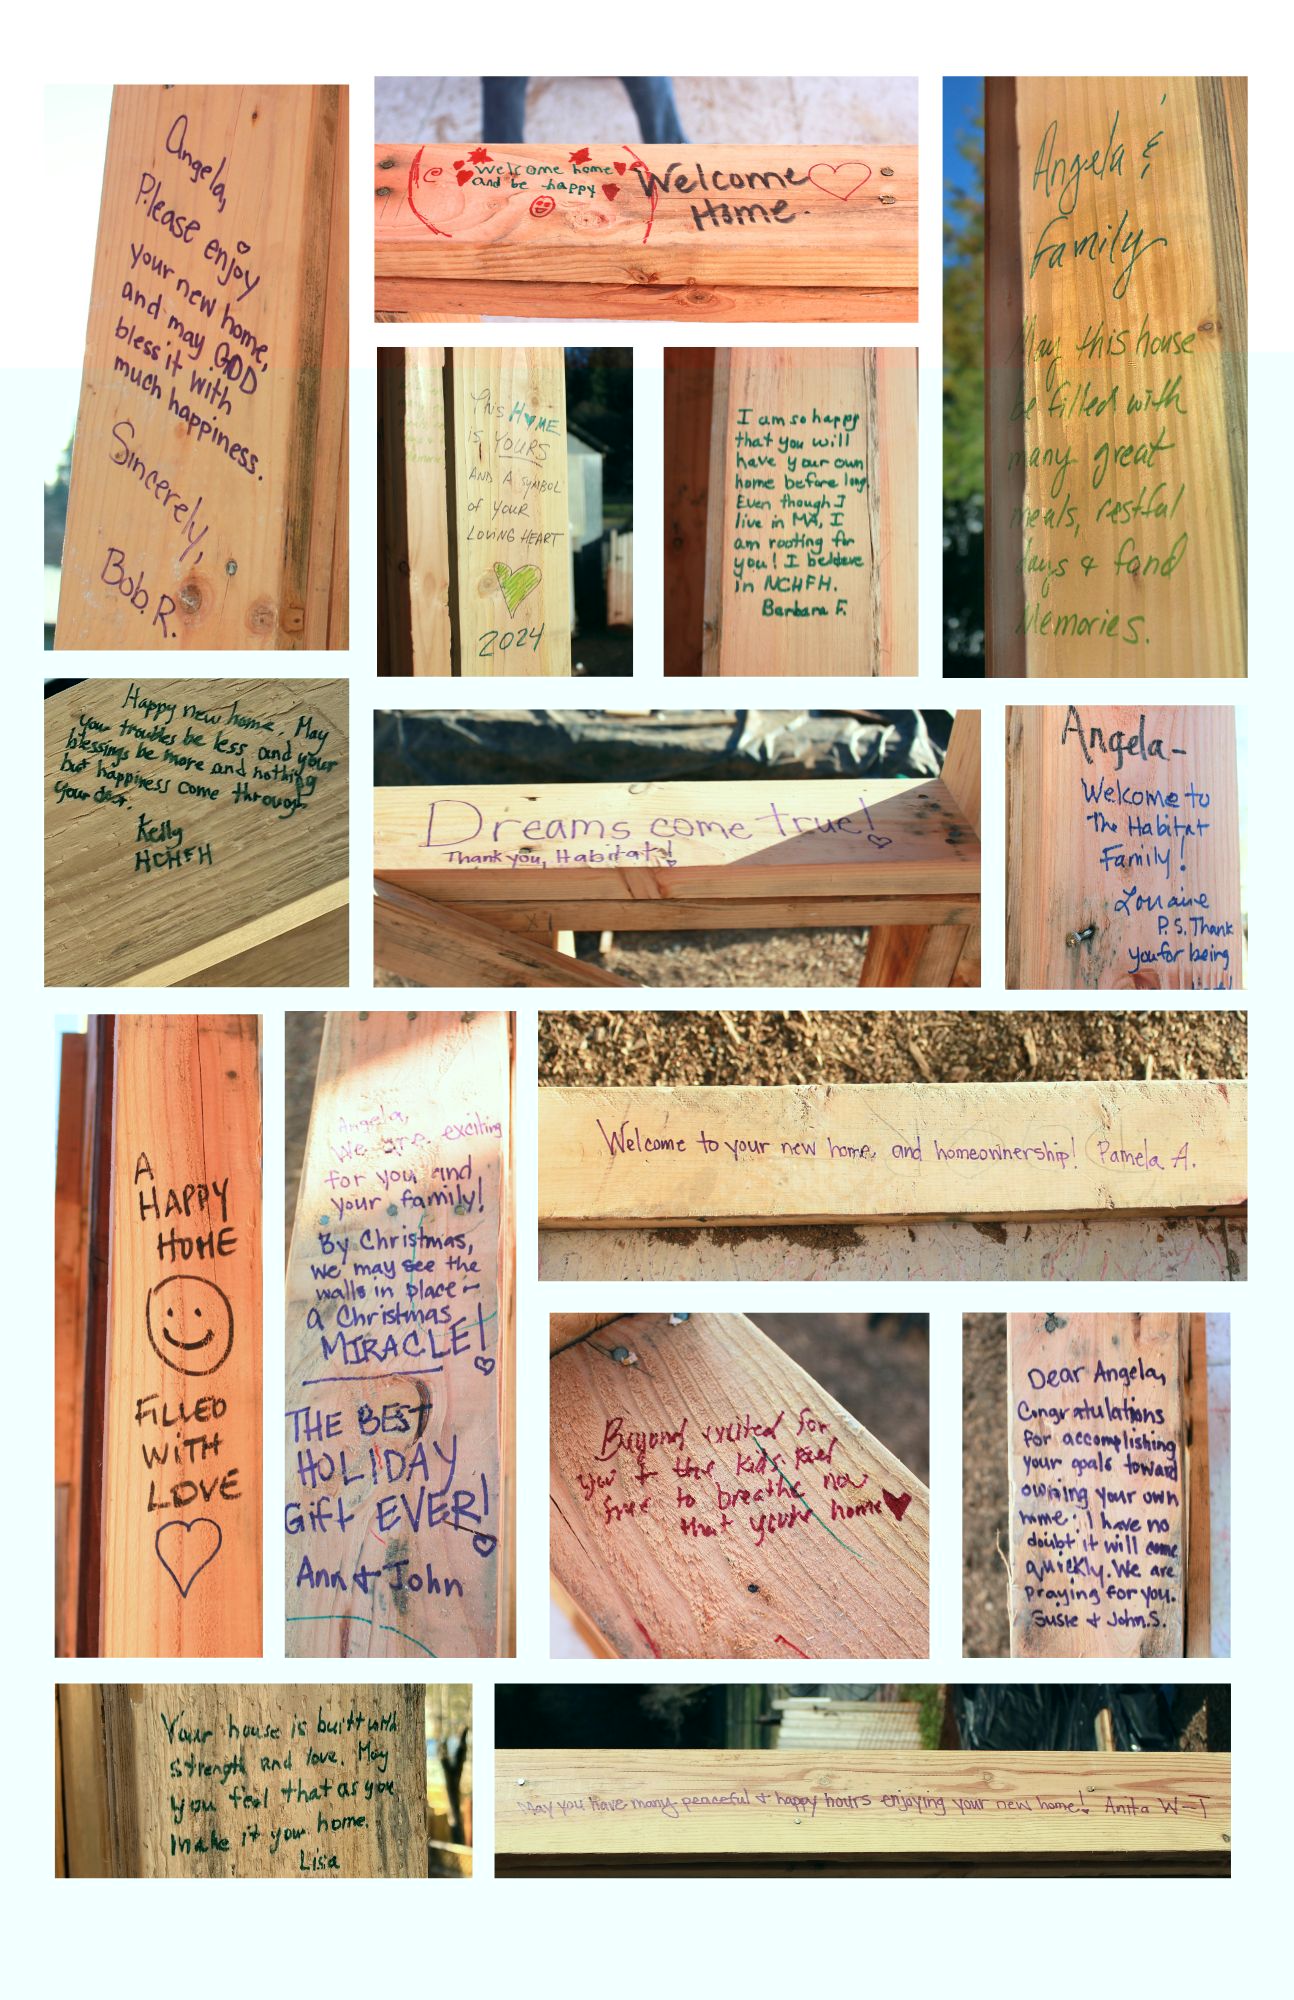 Angela,
Please enjoy
your new home,
and may GOD
bless it with
much happiness.
Sincerely,
Bob. R.
Welcome home
and be happy
Welcome
Home.
Angela &
Family
May this house
be filled with
many great
meals, restful
days & fond
Memories.
THIS HOME
is YOURS
AND A SYMBOL
of YOUR
LOVING HEART
2024
I am so happy
that you will
have your own
home before long
Even though I
live in MA, I
am rooting for
you! I
in NCHFH.
Barbara F.
Happy new home. May
your troubles be less and your
blessings be more and nothing
but happiness come through
your door.
Kelly
NCHFH
Dreams come true!
Thank you, Habitat!
Angela-
Welcome to
The Habitat
Family!
Lorraine
P.S. Thank
you for being
A
HAPPY
HOME
FILLED
WITH
LOVE
Angela,
We are exciting
for you and
your family!
By Christmas,
we may see the
walls in place -
a Christmas
MIRACLE!
THE BEST
HOLIDAY
Gift EVER!
Ann & John
Welcome to your new home, and homeownership! Pamela A.
Beyond excited for
you & the kids. Feel
free to breathe now
that you're home
Dear Angela,
Congratulations
for accomplishing
your goals toward
owning your own
home. I have no
doubt it will come
quickly. We are
praying for you.
Susie & John.S.
Your house is built with
strength and love. May
you feel that as you
make it your home.
Lisa
May you have many peaceful & happy hours enjoying your new home! Anita W-T